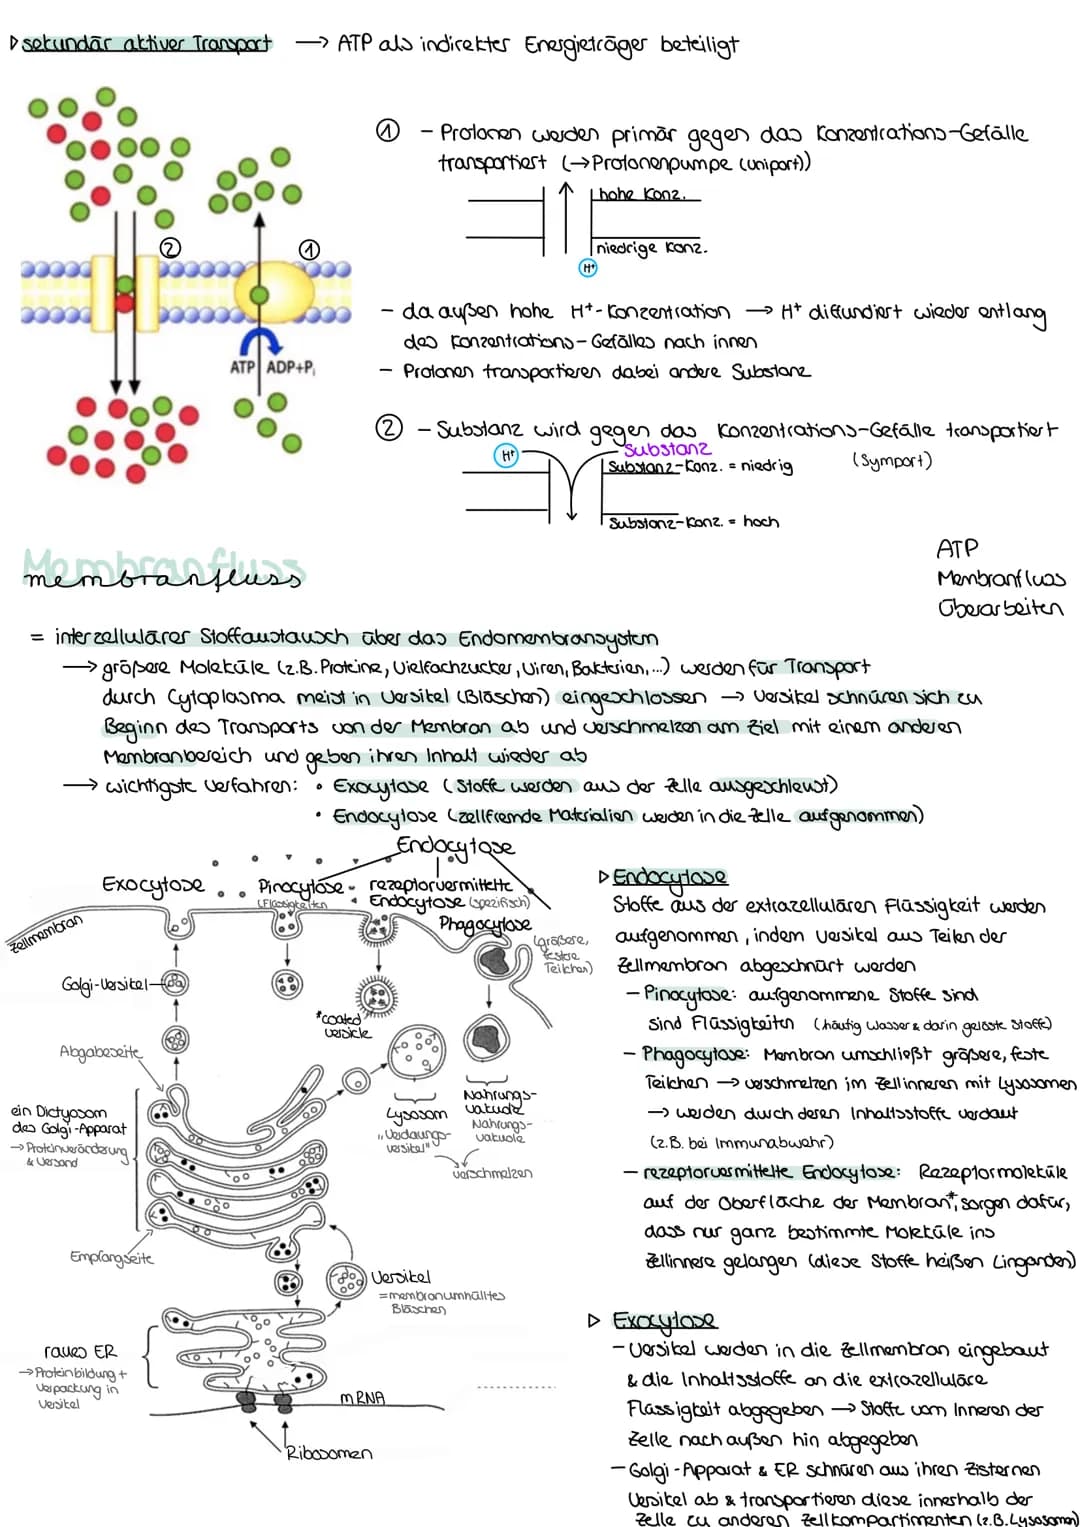 ▷ sekundär aktiver Transport → ATP als indirekter Energieträger beteiligt
① - Protonen werden primär gegen das Konzentrations-Gefälle
transportiert (→Protonenpumpe (uniport))
hohe Konz.
niedrige Konz.
H+
- da außen hohe H+-Konzentration → H+ diffundiert wieder entlang
des Konzentrations-Gefälles nach innen
- Protonen transportieren dabei andere Substanz
②
①
ATP ADP+Pi
② - Substanz wird gegen das Konzentrations-Gefälle transportiert
(Symport)
H+
Substanz
Substanz-Konz. = niedrig
Substanz-Konz. = hoch
ATP
Membranfluss
Überarbeiten
Membranfluss
membranfluss
= interzellulärer Stoffaustausch über das Endomembransystem
→ größere Moleküle (z.B. Proteine, Vielfachzucker, Viren, Bakterien,...) werden für Transport
durch Cytoplasma meist in Versikel (Bläschen) eingeschlossen → Versikel schnüren sich zu
Beginn des Transports von der Membran ab und verschmelzen am Ziel mit einem anderen
Membranbereich und geben ihren Inhalt wieder ab
→ wichtigste Verfahren: • Exocytose (Stoffe werden aus der Zelle ausgeschleust)
• Endocytose (zellfremde Materialien werden in die Zelle aufgenommen)
Endocytose
Exocytose
Pinocytose
(Flüssigkeiten
rezeptorvermittelte
Endocytose (spezifisch)
Phagocytose
(größere,
festere
Teilchen)
Zellmembran
Golgi-Versikel
*coated
versicle
Abgabeseite
ein Dictyosom
des Golgi-Apparat
→ Proteinveränderung
& Versand
Lysosom
„Verdauungs-
versikel"
Nahrungs-
vakuole
Nahrungs-
vakuole
verschmelzen
Empfangseite
Versikel
=membranumhülltes
Bläschen
raues ER
→ Proteinbildung +
Verpackung in
Versikel
mRNA
Ribosomen
▷ Endocytose
Stoffe aus der extrazellulären Flüssigkeit werden
aufgenommen, indem Versikel aus Teilen der
Zellmembran abgeschnürt werden
- Pinocytose: aufgenommene Stoffe sind
sind Flüssigkeiten (häufig Wasser & darin gelöste Stoffe)
- Phagocytose: Membran umschließt größere, feste
Teilchen → verschmelzen im Zellinneren mit Lysosomen
→ werden durch deren Inhaltsstoffe verdaut
(z.B. bei Immunabwehr)
- rezeptorvermittelte Endocytose: Rezeptormoleküle
auf der Oberfläche der Membran*, sorgen dafür,
dass nur ganz bestimmte Moleküle ins
Zellinnere gelangen (diese Stoffe heißen Linganden)
▷ Exocytose
- Versikel werden in die Zellmembran eingebaut
& die Inhaltsstoffe an die extrazelluläre
Flüssigkeit abgegeben → Stoffe vom Inneren der
Zelle nach außen hin abgegeben
- Golgi-Apparat & ER schnüren aus ihren Zisternen
Versikel ab & transportieren diese innerhalb der
Zelle zu anderen Zellkompartimenten (z.B. Lysosomen)